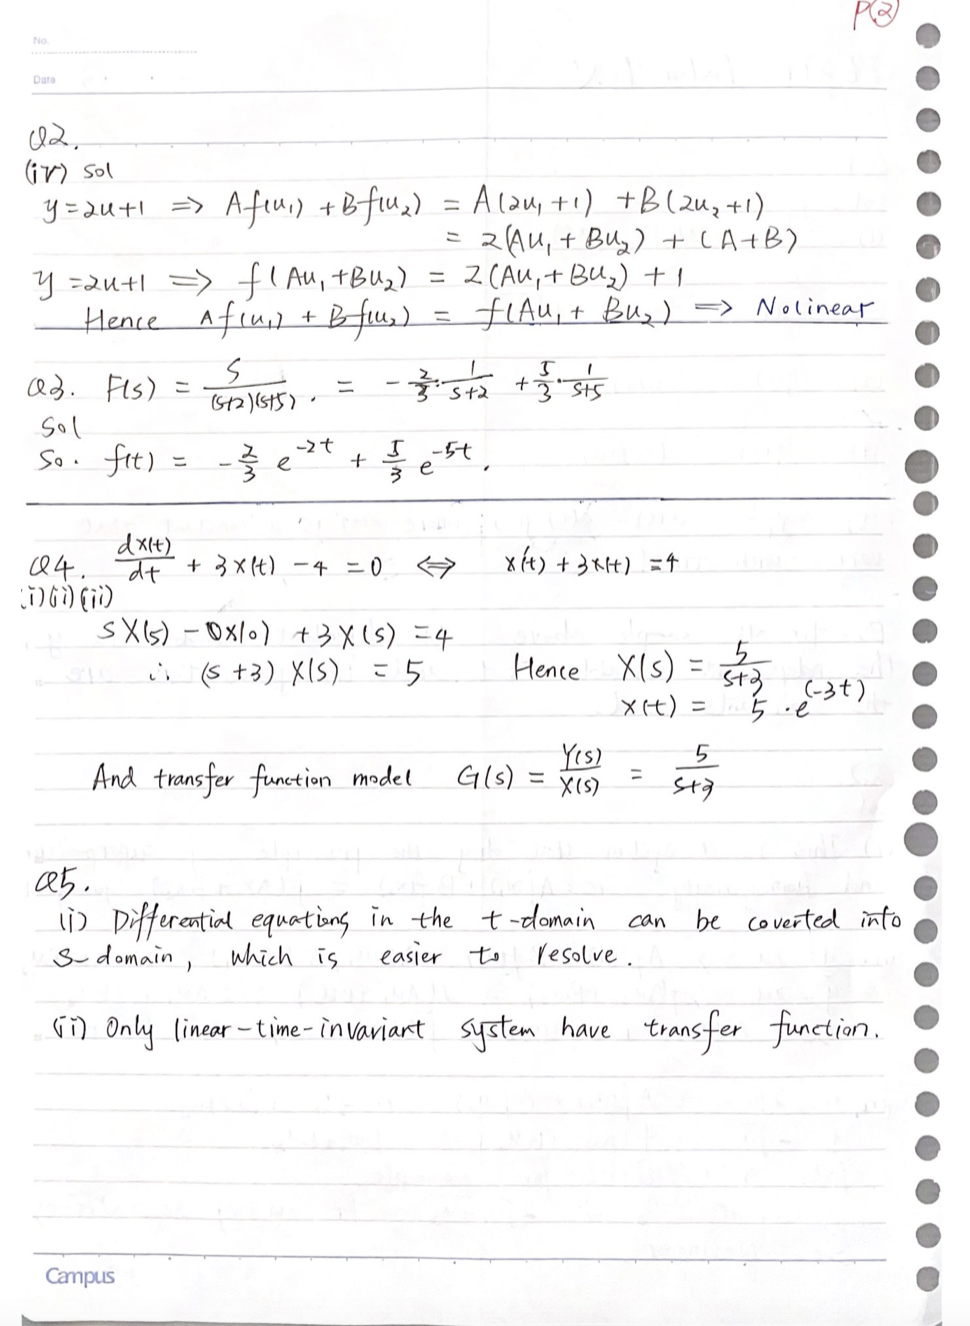 P②
No.
Date
Q2.
(iv) sol
y=2u+1 => Af(u₁) + Bf(u₂) = A(2u₁+1) + B(2u₂+1)
= 2(Au₁ + Bu₂) + (A+B)
y=2u+1 => f(Au₁+Bu₂) = 2(Au₁+Bu₂) + 1
Hence Af(u₁) + Bf(u₂) = f(Au₁ + Bu₂) => Nolinear
Q3. F(s) = S/((s+2)(s+5)). = -2/3·1/(s+2) + 5/3·1/(s+5)
Sol
So. f(t) = -2/3 e^(-2t) + 5/3 e^(-5t).
Q4. dx(t)/dt + 3x(t) - 4 = 0 <=> x'(t) + 3x(t) = 4
(i)(ii)(iii)
SX(s) - 0x(0) + 3X(s) = 4
∴ (s+3) X(s) = 5 Hence X(s) = 5/(s+3)
x(t) = 5·e^(-3t)
And transfer function model G(s) = Y(s)/X(s) = 5/(s+3)
Q5.
(i) Differential equations in the t-domain can be coverted into
S-domain, which is easier to resolve.
(ii) Only linear-time-invariant system have transfer function.
Campus